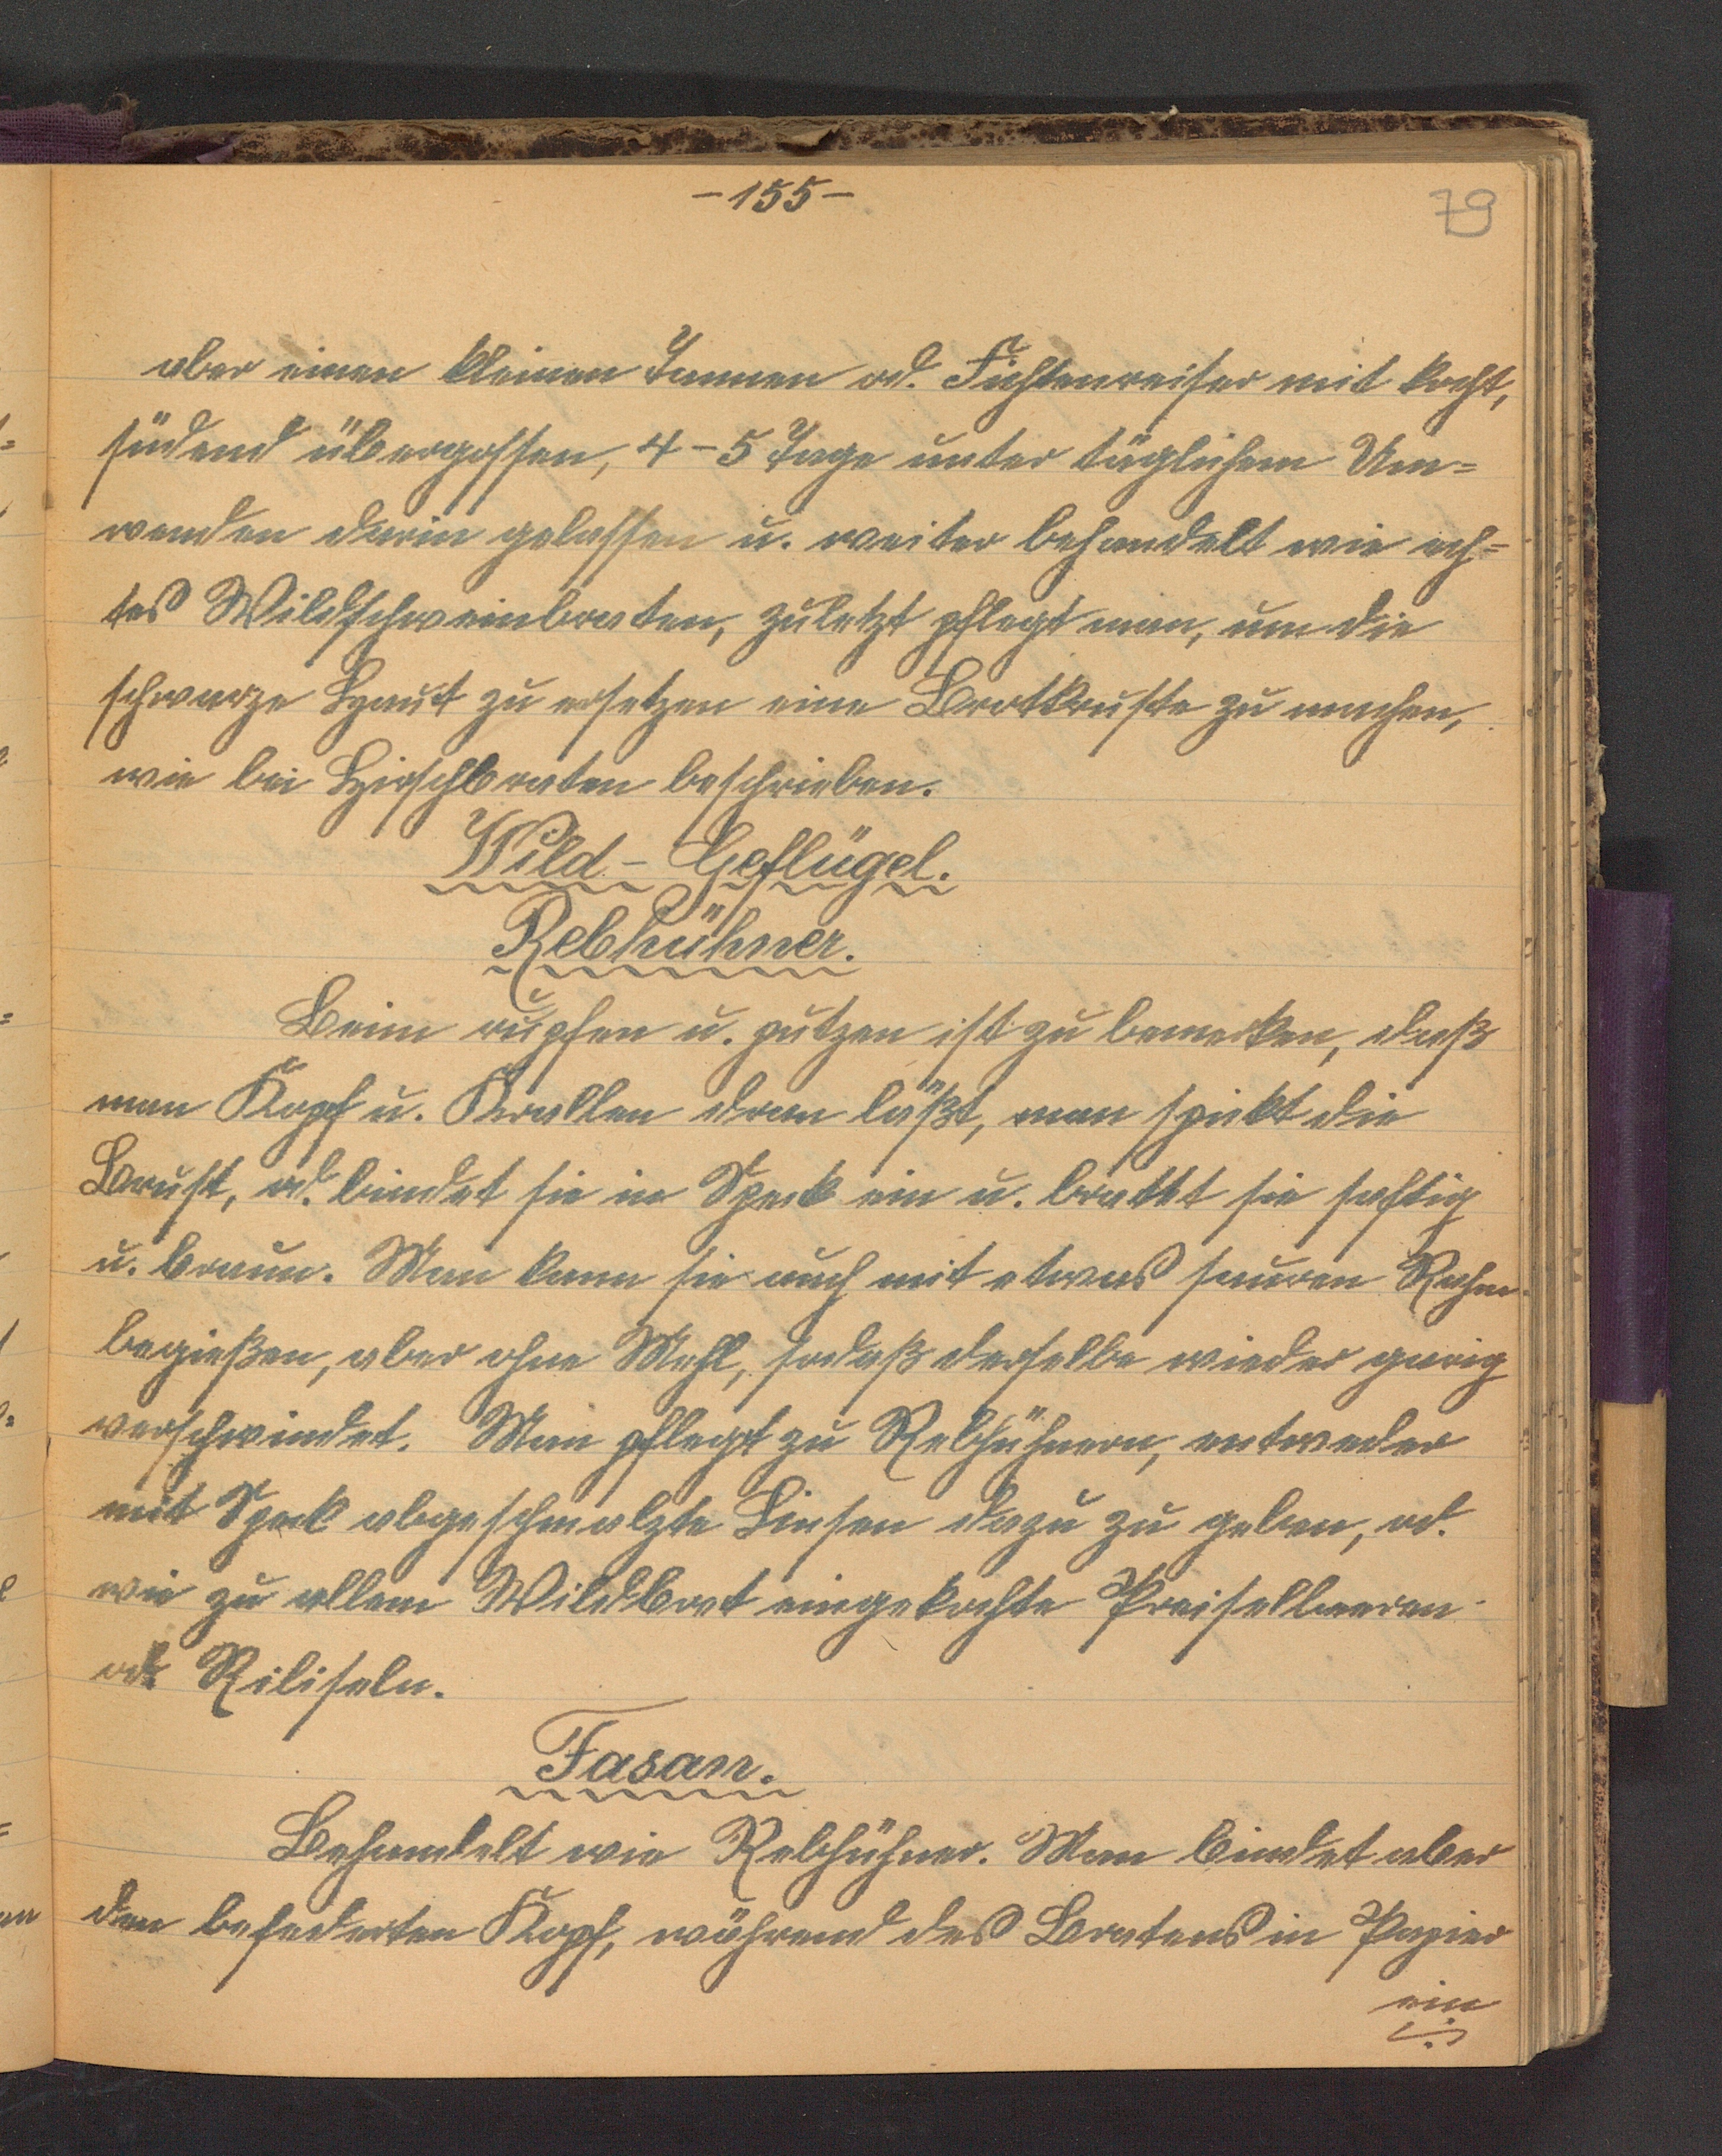 -155-
79
aber einen kleinen Tannen od. Fichtenreiser mit kocht,
südend übergossen, 4-5 Tage unter täglichem Um=
wenden darin gelassen u. weiter behandelt wie ech=
tes Wildschweinbraten, zuletzt pflegt man, um die
schwarze Haut zu ersetzen eine Brotkruste zu machen,
wie bei Hirschbraten beschrieben.
Wild-Geflügel.
Rebhühner.
Beim rupfen u. putzen ist zu bemerken, daß
man Kopf u. Krallen dran läßt, man spickt die
Brust, od. bindet sie in Speck ein u. bratet sie saftig
u. braun. Man kann sie auch mit etwas sauren Rahm
begießen, aber ohne Mehl, sodaß derselbe wieder
verschwindet. Man pflegt zu Rebhühnern, entweder
mit Speck abgeschmalzte Linsen dazu zu geben, od.
wie zu allem Wildbret eingekochte Preiselbeeren
od. Ribiseln.
Fasan.
Behandelt wie Rebhühner. Man bindet aber
den befederten Kopf, während des Bratens in Papier
ein